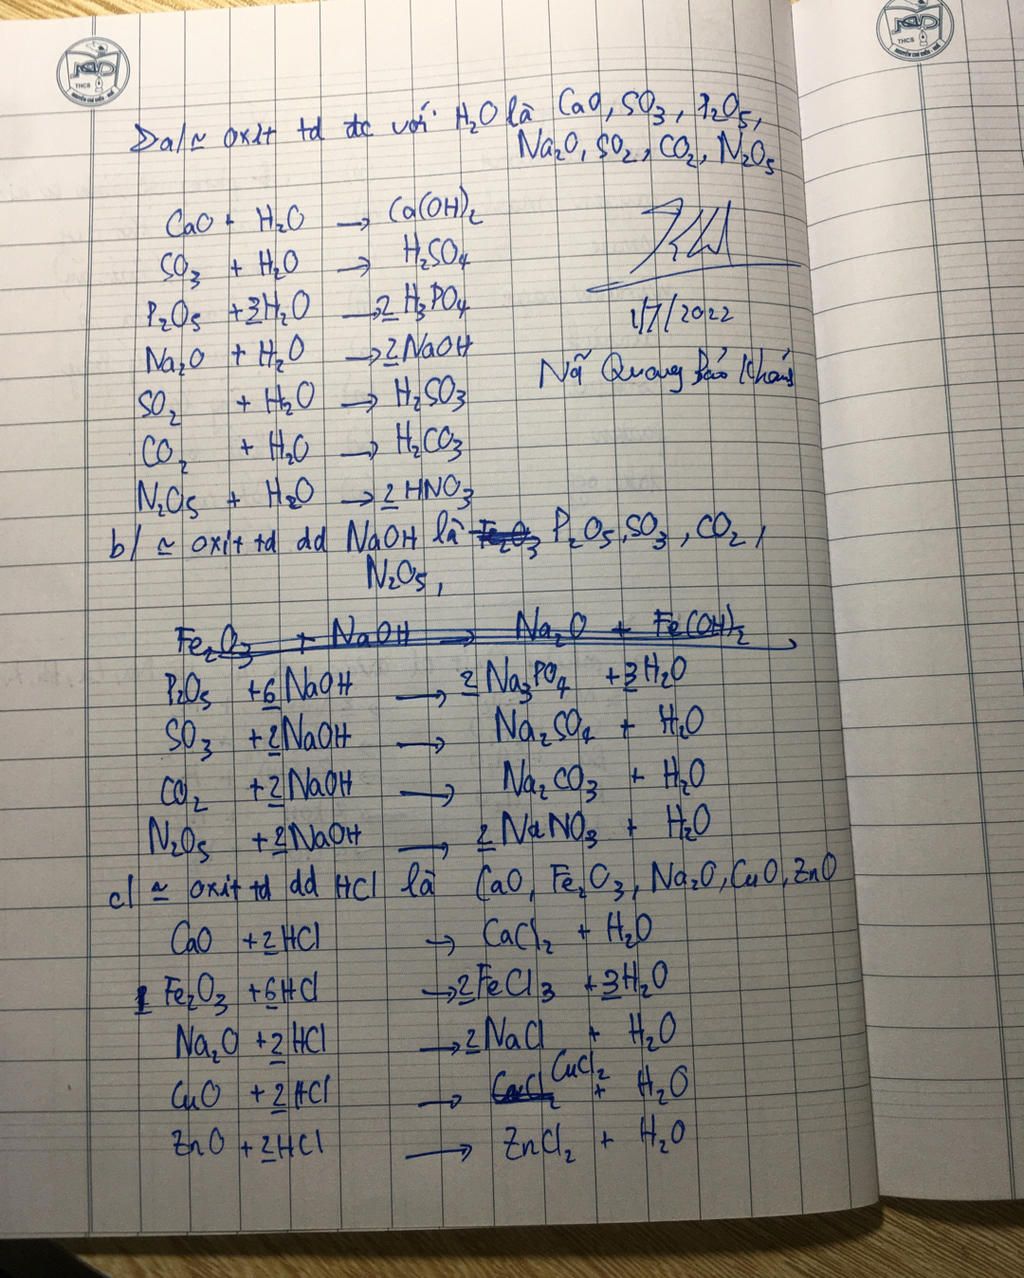 THCS
NGUYỄN CHÍ DIỂU - HUẾ
THCS
D a/ ≃ oxit td đc với H₂O là CaO, SO₃, P₂O₅,
Na₂O, SO₂, CO₂, N₂O₅
CaO + H₂O → Ca(OH)₂
SO₃ + H₂O → H₂SO₄
P₂O₅ + 3H₂O → 2 H₃PO₄
1/7/2022
Na₂O + H₂O → 2NaOH
Quang Bảo
SO₂ + H₂O → H₂SO₃
CO₂ + H₂O → H₂CO₃
N₂O₅ + H₂O → 2 HNO₃
b/ ≃ oxit td dd NaOH là Fe₂O₃ P₂O₅, SO₃, CO₂,
N₂O₅,
Fe₂O₃ + NaOH → Na₂O + Fe(OH)₂
P₂O₅ + 6 NaOH → 2 Na₃PO₄ + 3 H₂O
SO₃ + 2NaOH → Na₂SO₄ + H₂O
CO₂ + 2NaOH → Na₂CO₃ + H₂O
N₂O₅ + 2NaOH → 2 NaNO₃ + H₂O
c/ ≃ oxit td dd HCl là CaO, Fe₂O₃, Na₂O, CuO, ZnO
CaO + 2HCl → CaCl₂ + H₂O
1 Fe₂O₃ + 6HCl → 2FeCl₃ + 3H₂O
Na₂O + 2HCl → 2NaCl + H₂O
CuO + 2HCl → CuCl₂ + H₂O
ZnO + 2HCl → ZnCl₂ + H₂O